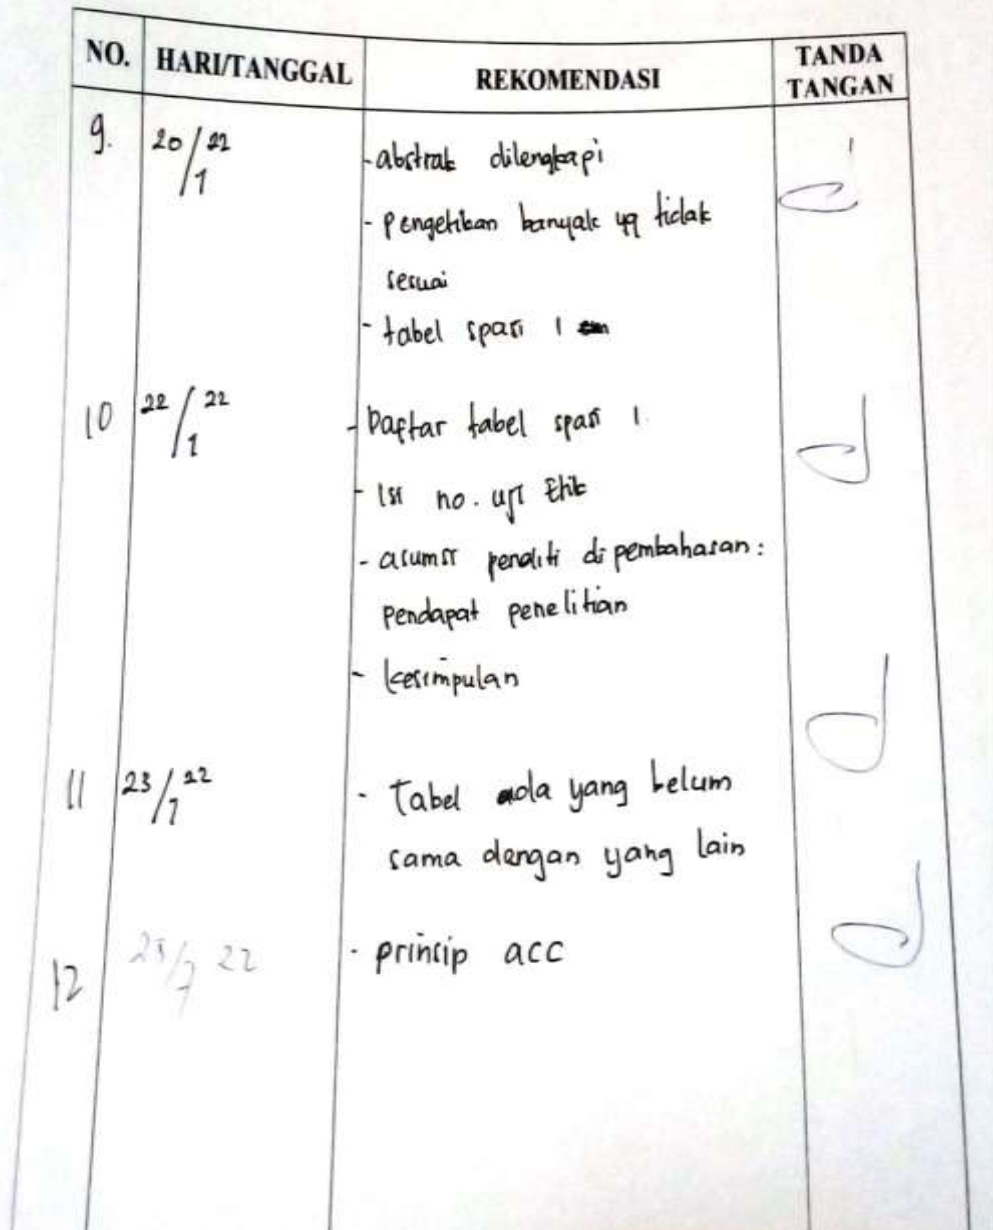 NO. HARI/TANGGAL REKOMENDASI TANDA TANGAN
9. 20/1 22 - abstrak dilengkapi
- pengetikan banyak yg tidak
sesuai
- tabel spasi 1
10 22/1 22 - Daftar tabel spasi 1.
- Isi no. uji Etik
- asumsi peneliti di pembahasan:
pendapat penelitian
- kesimpulan
11 23/1 22 - Tabel ada yang belum
sama dengan yang lain
12 22 - prinsip acc